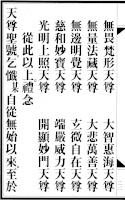 無畏梵形天尊　大智惠海天尊
無量法藏天尊　大悲萬善天尊
無邊明覺天尊　玄微自在天尊
慈和妙寶天尊　端嚴威力天尊
光明上照天尊　開顯妙門天尊
從此以上禮念
天尊聖號乞懺某自從無始以來至於